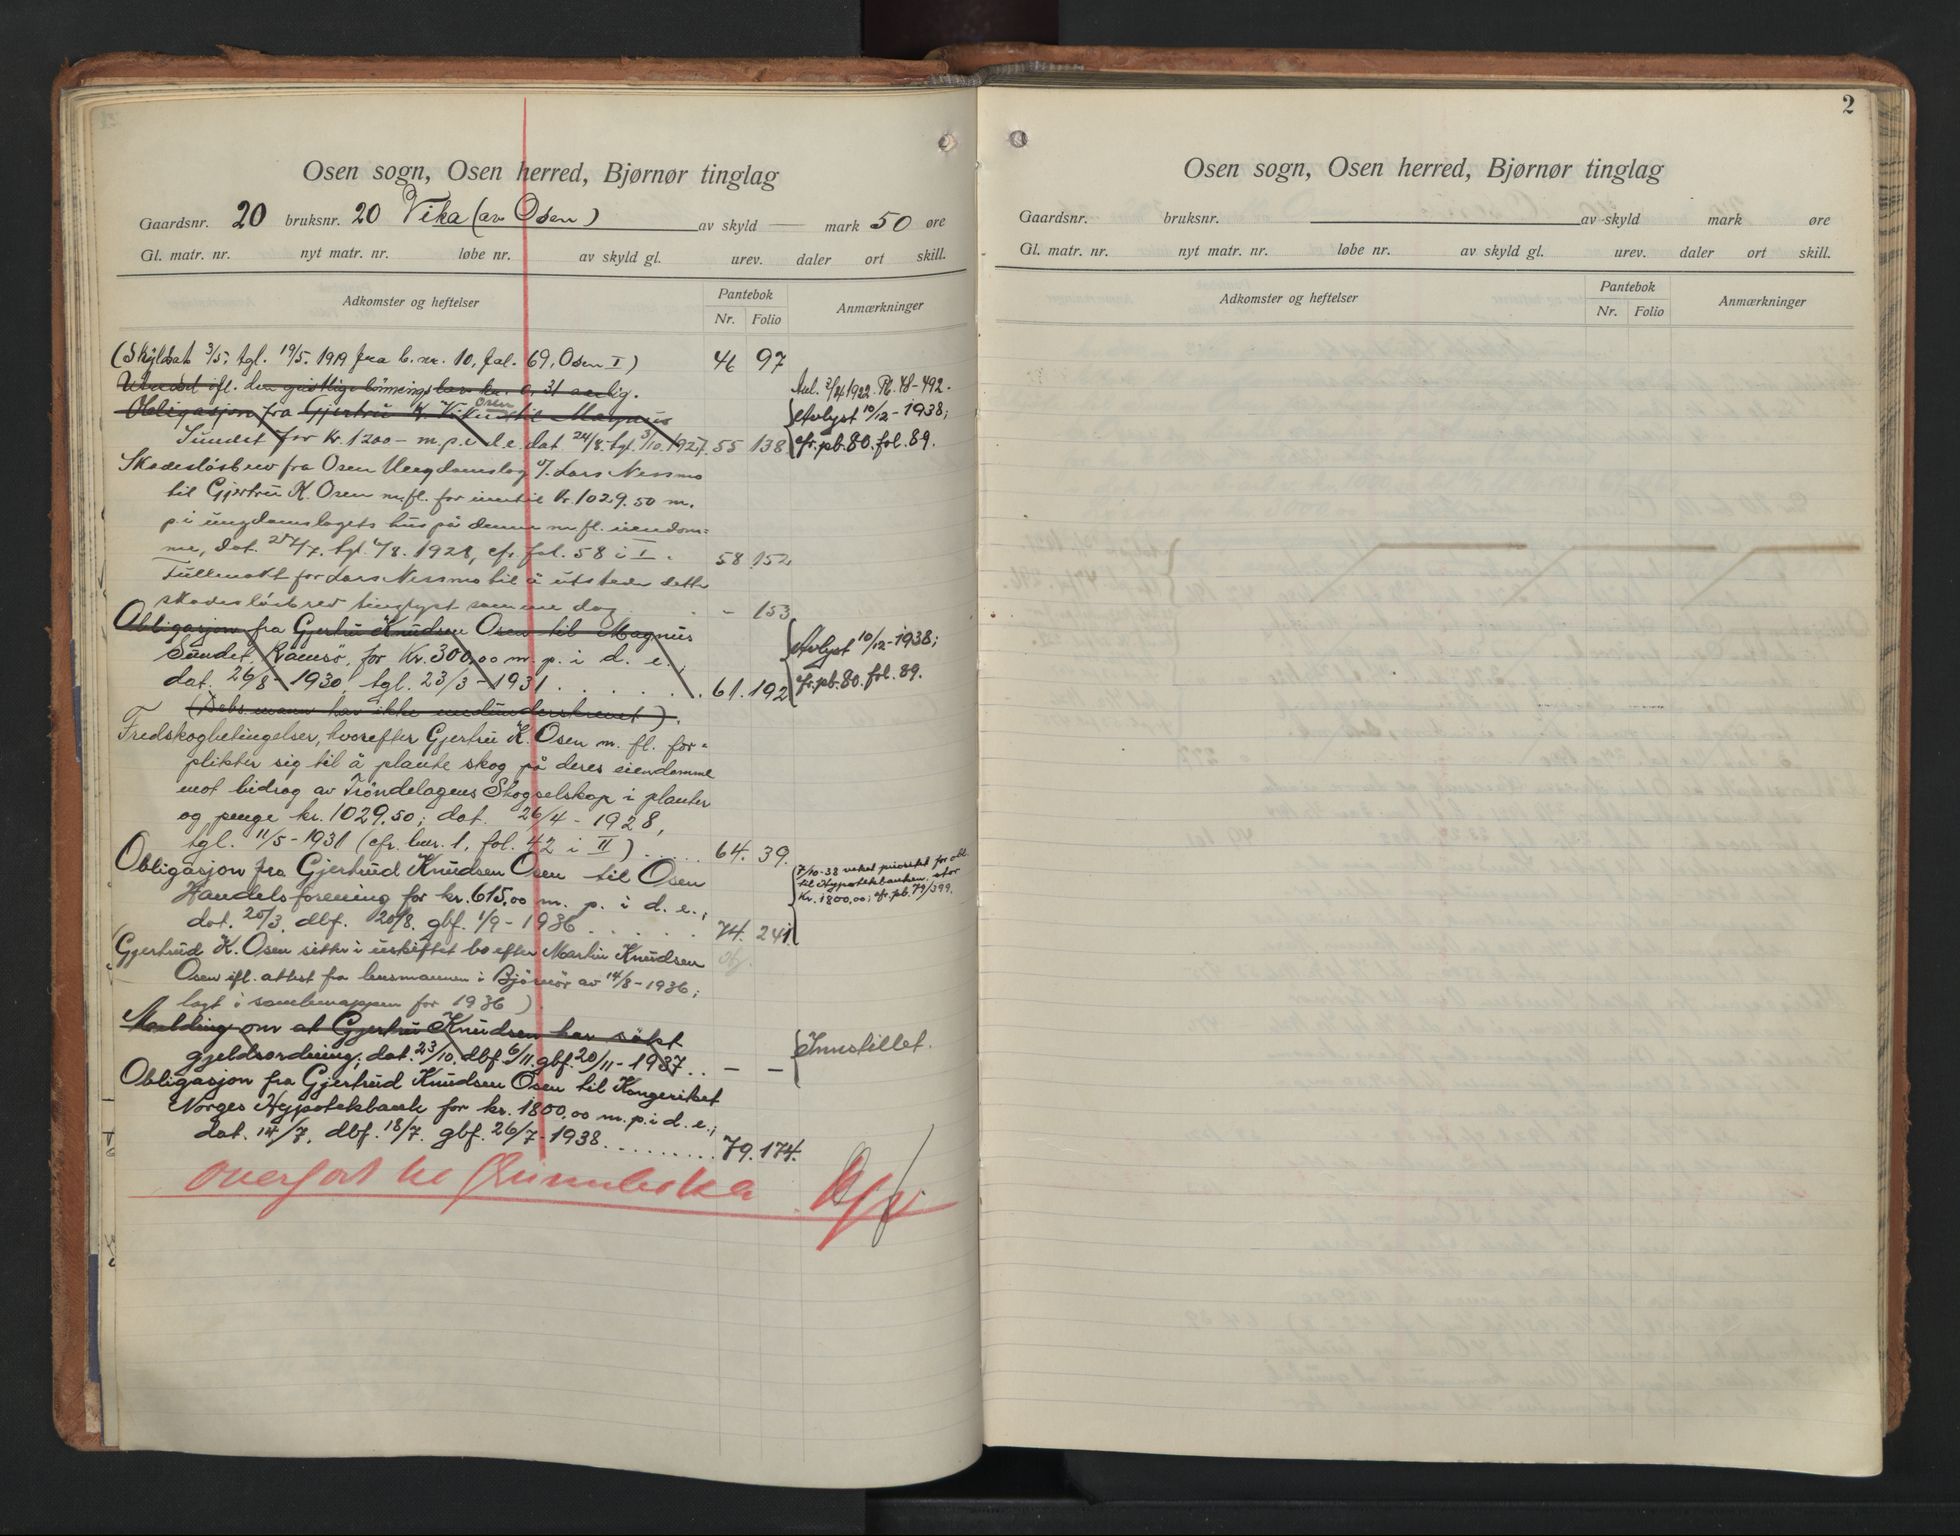 Osen sogn, Osen herred, Bjørnør tinglag
Gaardsnr. 20 bruksnr. 20 Vika (av Osen) av skyld — mark 50 øre
Gl. matr. nr. nyt matr. nr. løbe nr. av skyld gl. urev. daler ort skill.
Adkomster og heftelser Pantebok Anmærkninger
Nr. Folio
(Skyldsat 3/5, tgl. 19/5. 1919 fra b. nr. 10, fol. 69, Osen I) 46 97
ifl. den geistlige lønningslov kr. 0,31 aarlig. Avl. 1922 Pb. 48-492.
Obligasjon fra Gjertru K. Vik Osen til Magnus Avlyst 10/12-1938;
Sundet for kr. 1200 – m. p. i d. e. dat. 24/8. tgl. 3/10. 1927. 55 138 cfr. pb. 80. fol. 89.
Skadesløsbrev fra Osen Ungdomslag v/ Lars Nessmo
til Gjertru K. Osen m. fl. for inntil kr. 1029.50 m.
p. i ungdomslagets hus på denne m fl. eiendom=
me, dat. /7. tgl. /8. 1928, cfr. fol. 58 i I. 58 152
Fullmakt for Lars Nessmo til å utstede dette
skadesløsbrev tinglyst samme dag – 153
Obligasjon fra Gjertru Knudsen Osen til Magnus
Sundet, Ramsø, for kr. 300,00 m. p. i d. e.; Avlyst 10/12-1938;
dat. 26/8-1930, tgl. 23/3-1931 61. 192 cfr. pb. 80. fol. 89.
(Debs. mann har ikke medunderskrevet).
Fredskogbetingelser, hvorefter Gjertru K. Osen m. fl. for=
plikter sig til å plante skog på deres eiendomme
mot bidrag av Trøndelagens Skogselskap i planter
og penge kr. 1029.50; dat. 26/4-1928,
tgl. 11/5-1931 (cfr. bnr. 1, fol. 42 i II) 64. 39.
Obligasjon fra Gjertrud Knudsen Osen til Osen 7/10-38 veket prioritet for obl.
Handelsforening for kr. 615,00 m. p. i d. e.; til Hypotekbanken, stor
dat. 20/3. dbf. 20/8. gbf. 1/9-1936 74. 241 kr. 1800,00; cfr. pb. 79/399.
(Gjertrud K. Osen sitter i uskiftet bo efter Martin Knudsen
Osen ifl. attest fra lensmannen i Bjørnør av 14/8-1936;
lagt i samlemappen for 1936)
Melding om at Gjertru Knudsen har søkt
gjeldsordning; dat. 23/10. dbf. 6/11. gbf. 20/11-1937 – – Innstillet.
Obligasjon fra Gjertrud Knudsen Osen til Kongeriket
Norges Hypotekbank for kr. 1800,00 m. p. i d. e.;
dat. 14/7. dbf. 18/7. gbf. 26/7-1938 79. 174.
overført til Grunnboka
2
Osen sogn, Osen herred, Bjørnør tinglag
Gaardsnr. bruksnr. av skyld mark øre
Gl. matr. nr. nyt matr. nr. løbe nr. av skyld gl. urev. daler ort skill.
Adkomster og heftelser Pantebok Anmærkninger
Nr. Folio